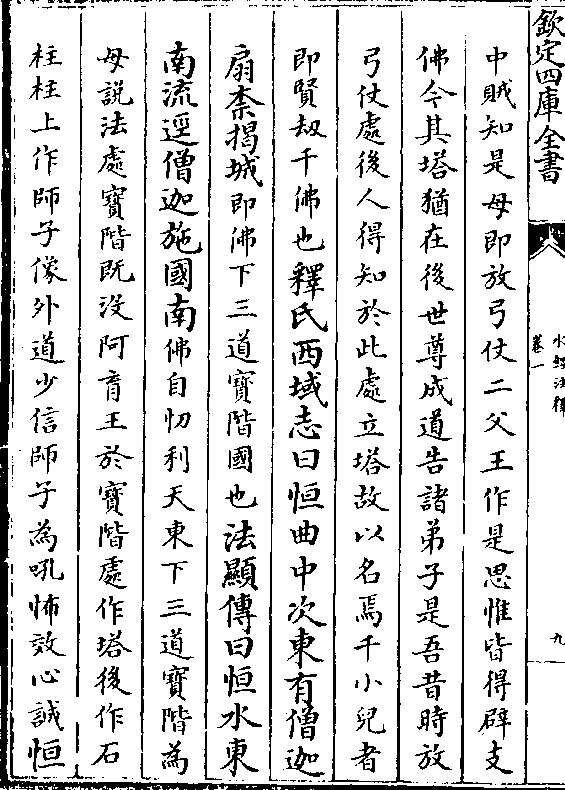 欽定四庫全書
水經注釋
卷一
九
中賊知是母即放弓仗二父王作是思惟皆得辟支
佛今其塔猶在後世尊成道告諸弟子是吾昔時放
弓仗處後人得知於此處立塔故以名焉千小兒者
即賢刼千佛也釋氏西域志曰恒曲中次東有僧迦
扇柰揭城即佛下三道寶階國也法顯傳曰恒水東
南流逕僧迦施國南佛自忉利天東下三道寶階為
母説法處寶階既没阿育王於寶階處作塔後作石
柱柱上作師子像外道少信師子為吼怖效心誠恒